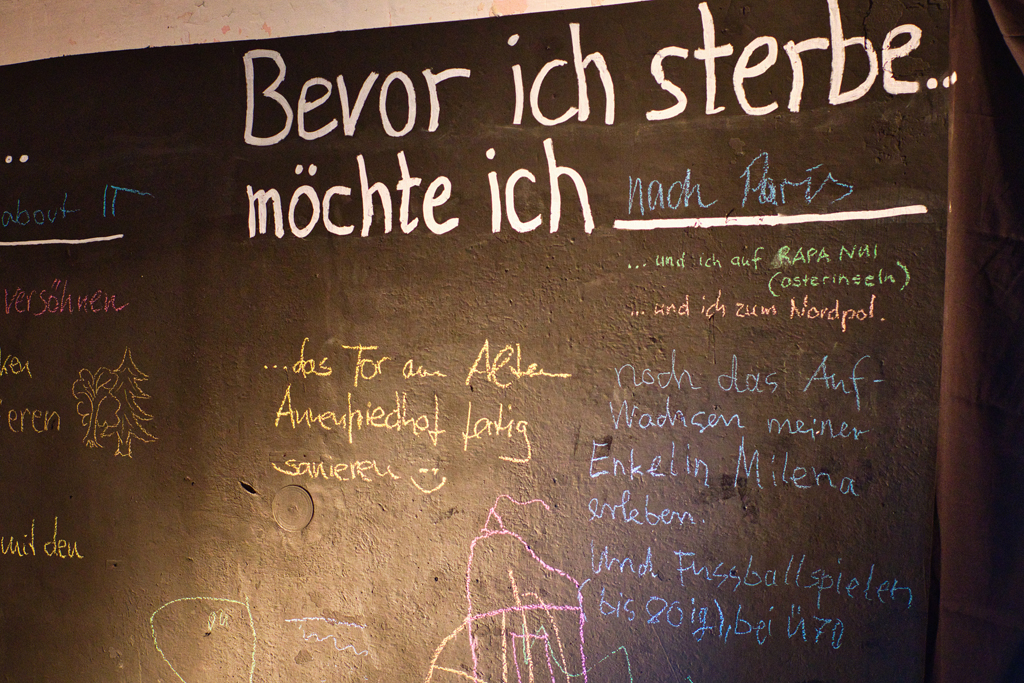 Bevor ich sterbe...
möchte ich nach Paris
... und ich auf RAPA NUI
(osterinseln)
... und ich zum Nordpol.
...
about IT
versöhnen
ken
ieren
mit den
...das Tor am Alten
Annenfriedhof fertig
sanieren
noch das Auf-
Wachsen meiner
Enkelin Milena
erleben.
Und Fussballspielen
bis 80ig), bei Ü70